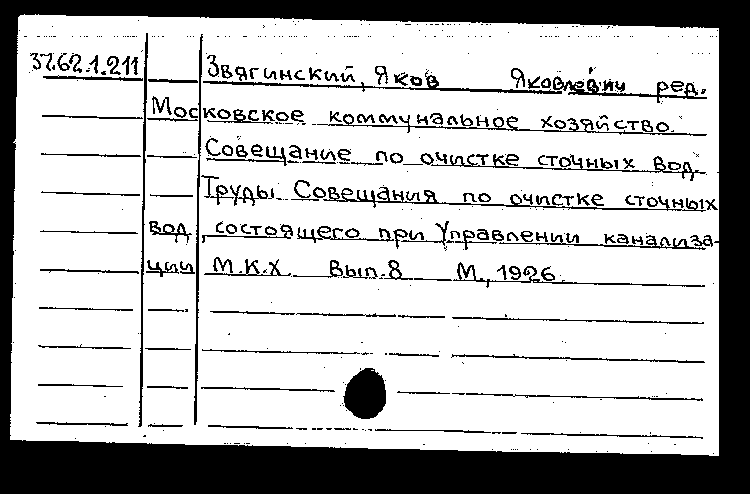 37.62.1.211 Звягинский, Яков Яковлевич ред.
Московское коммунальное хозяйство.
Совещание по очистке сточных вод.
Труды Совещания по очистке сточных
вод, состоящего при Управлении канализа-
ции М.К.Х. Вып.8 М., 1926.